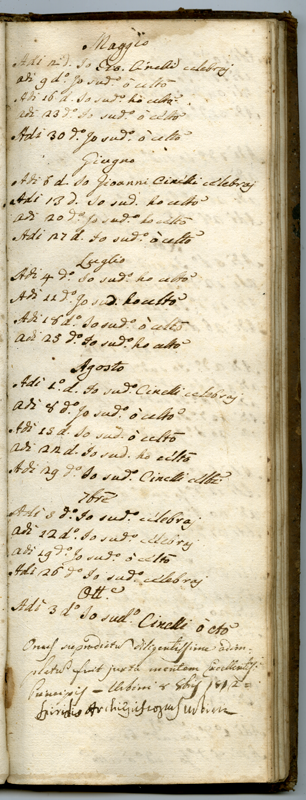 Maggio
Adi 2 d.º Io Gio. Cinelli celebraj
adi 9 d.º Io sud.º ò celtº
Adi 16 d. Io sud.º ho celtº
adi 23 dº Io sud.º ò celtº
Adi 30 dº Io sud.º ò celtº
Giugno
Adi 6 d. Io Gioanni Cinelli celebraj
Adi 13 d. Io sud. ho celtº
adi 20 dº Io sud.º ho celtº
Adi 27 d. Io sud.º ò celtº
Luglio
Adi 4 dº Io sud.º ho celtº
Adi 11 dº Io sud. ho celtº
Adi 18 dº Io sud.º ò celtº
adi 25 dº Io sud.º ho celtº
Agosto
Adi 1º d. Io sud.º Cinelli celebraj
adi 8 dº Io sud.º ò celtº
Adi 15 d. Io sud. ò celtº
adi 22 d. Io sud. ho celtº
Adi 29 dº Io sud.º Cinelli celtº
7bre
Adi 5 dº Io sud.º celebraj
adi 12 dº Io sud.º celebraj
adi 19 dº Io sud.º ò celtº
Adi 26 dº Io sud.º celebraj
Ott.e
Adi 3 dº Io sud.º Cinelli ò ctº
Onus supradictum diligentissime adim-
pletum fuit juxta mentem Excellentiss.
Principis = Urbini 8bris
Archiepiscopus Urbin